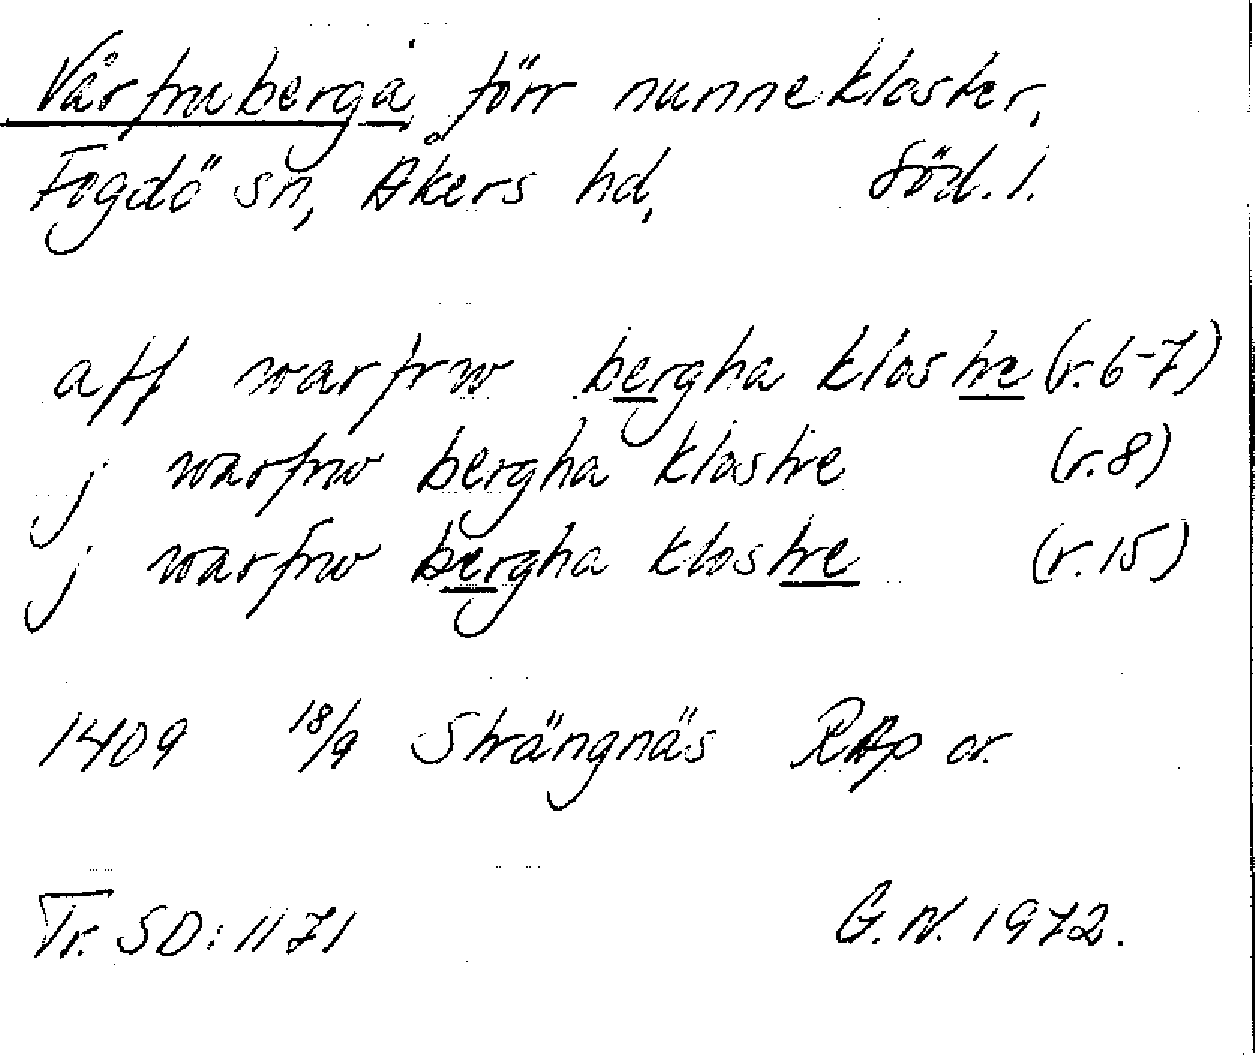 Vårfruberga, förr nunnekloster,
Fogdö sn, Åkers hd, Söd. l.
aff warfrw bergha klostre (r. 6-7)
j warfrw bergha klostre (r. 8)
j warfrw bergha klostre (r. 15)
1409 18/9 Strängnäs RAp or.
Tr. SD: 1171 G. N. 1972.